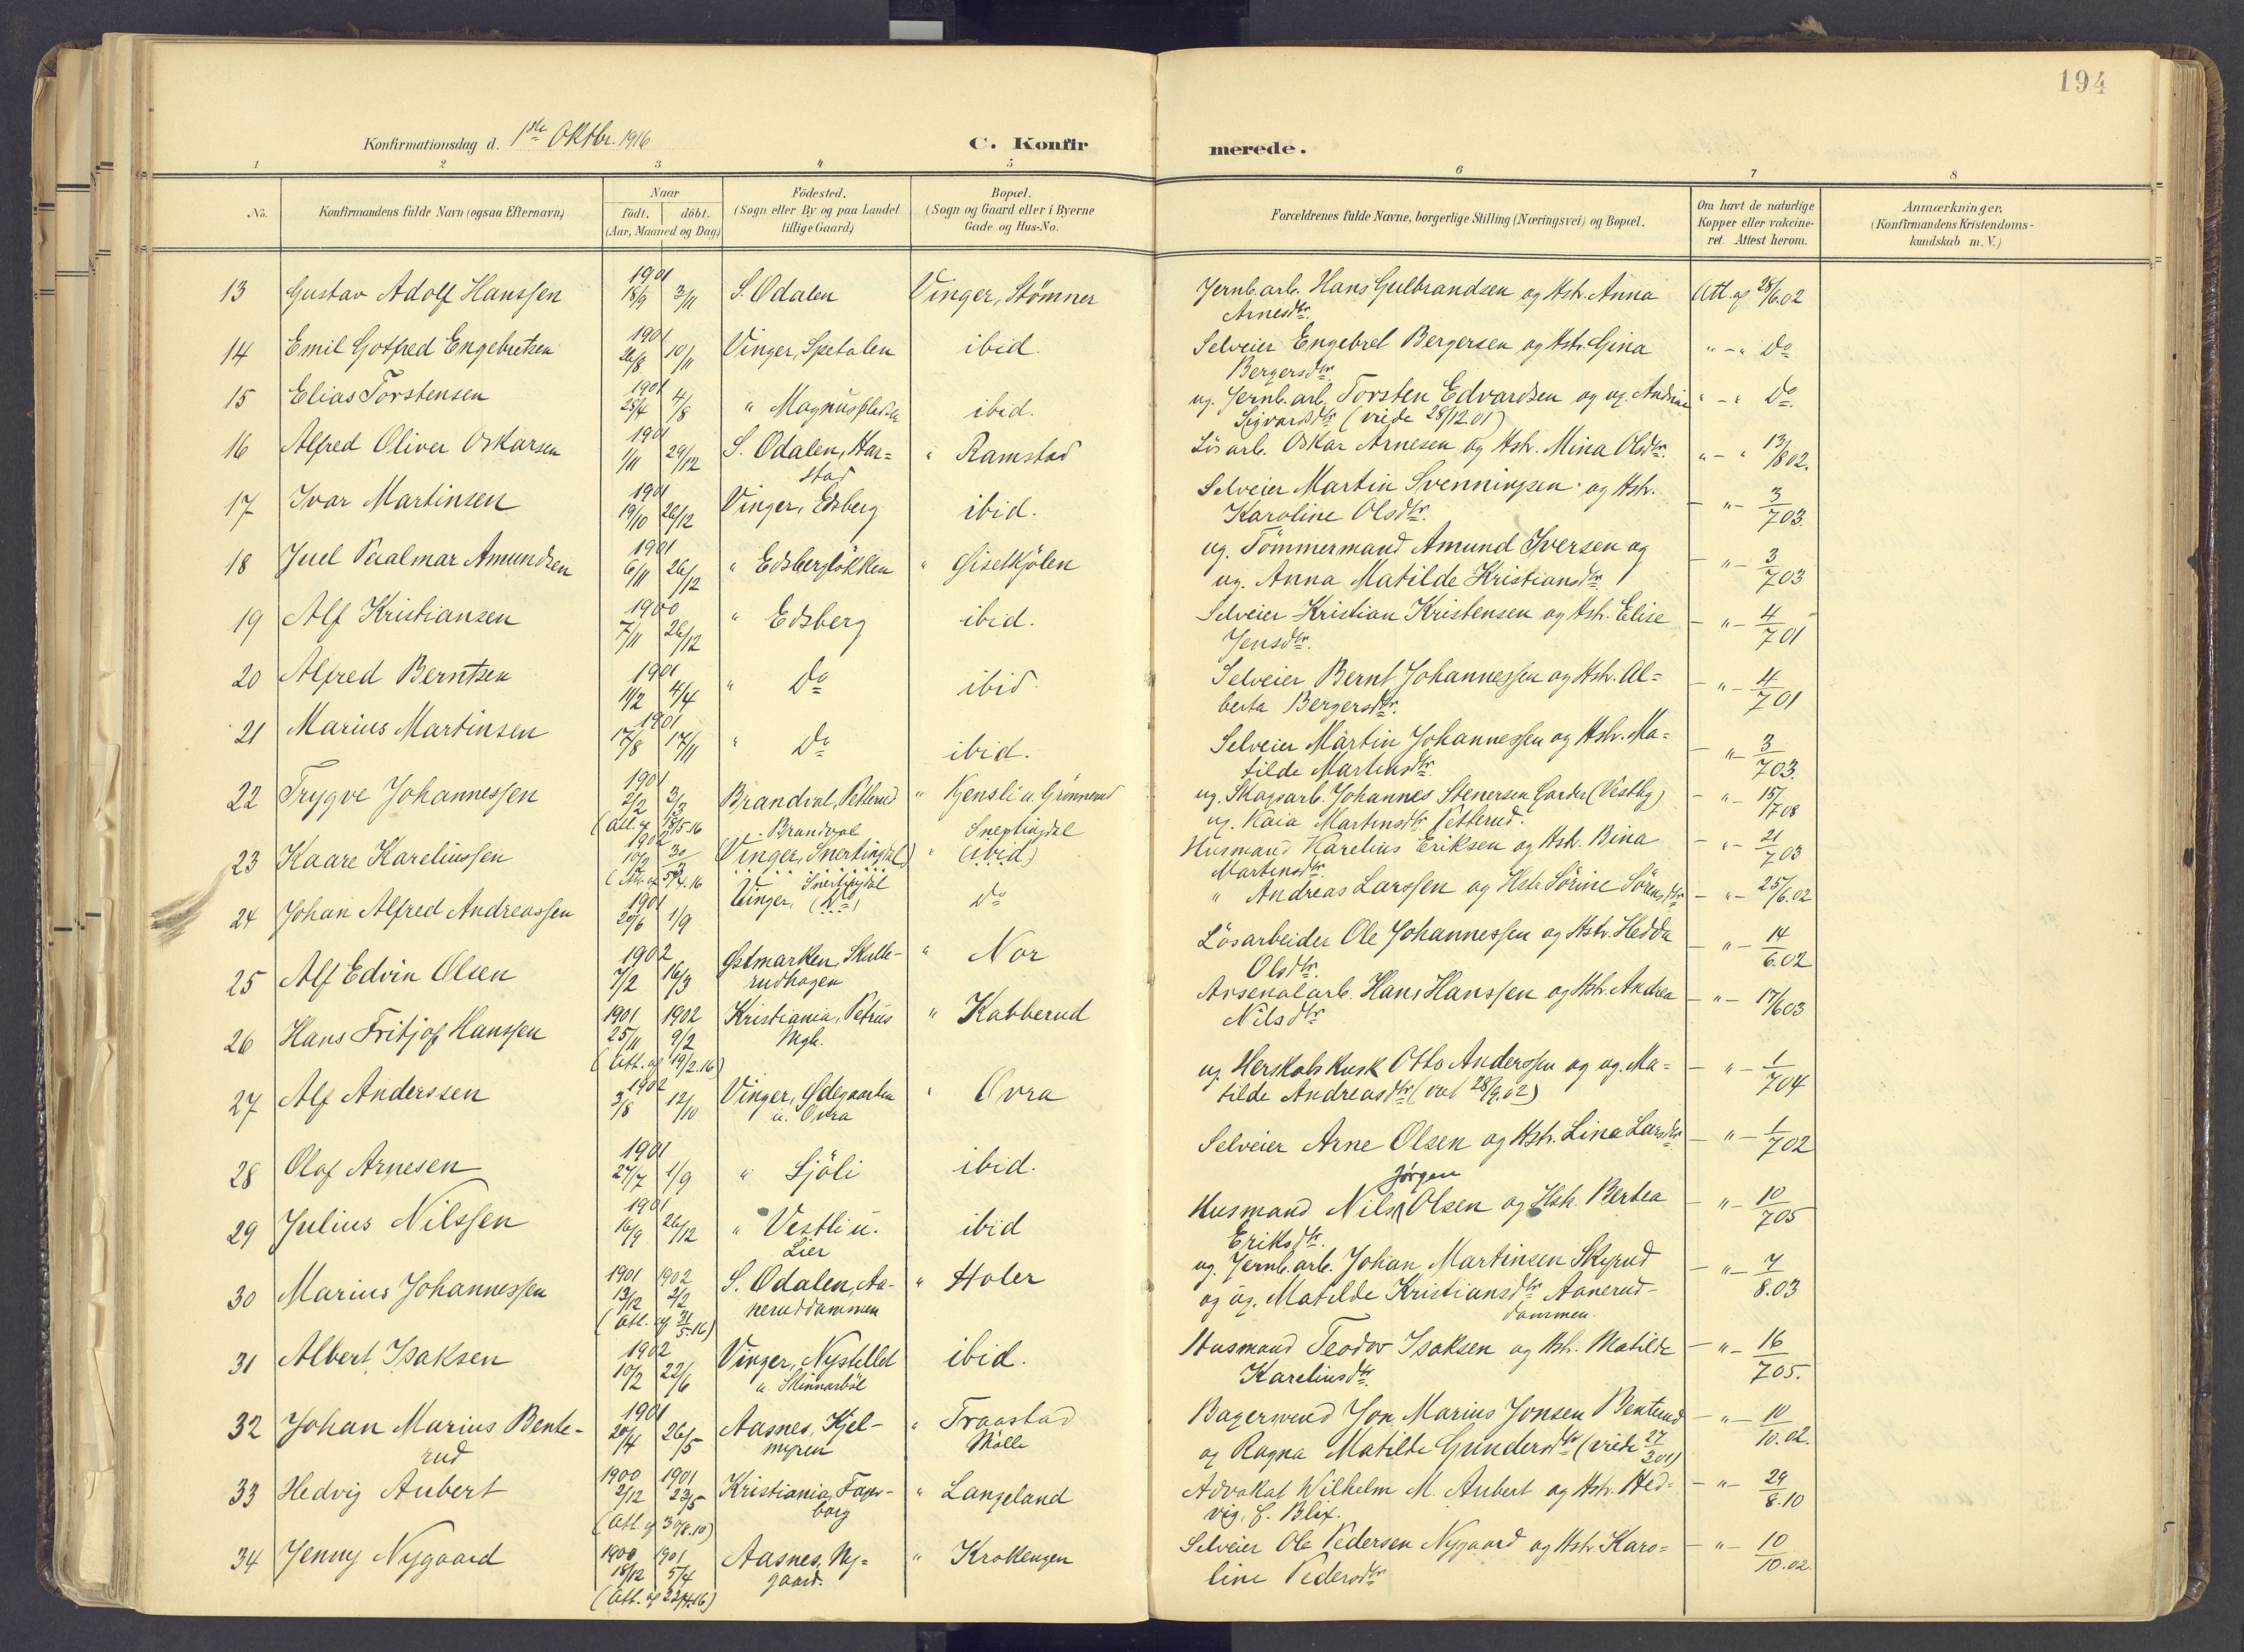 194
Konfirmationsdag d. 1ste Oktbr. 1916
C. Konfirmerede.
1 2 3 4 5 6 7 8
No.
Konfirmandens fulde Navn (ogsaa Efternavn)
Naar
födt. döbt.
(Aar, Maaned og Dag)
Födested.
(Sogn eller By og paa Landet
tillige Gaard)
Bopæl.
(Sogn og Gaard eller i Byerne
Gade og Hus-No.
Forældrenes fulde Navne, borgerlige Stilling (Næringsvei) og Bopæl.
Om havt de naturlige
Kopper eller vakcine-
ret. Attest herom.
Anmærkninger.
(Konfirmandens Kristendoms-
kundskab m. V.)
13 Gustav Adolf Hanssen 1901 18/9 3/11 S. Odalen Vinger, Stömner Jernb.arb. Hans Gulbrandsen og Hstr. Anna Att. af 28/6.02
Arnesdtr.
14 Emil Gotfred Engebretsen 1901 26/8 10/11 Vinger, Spetalen ibid. Selveier Engebret Bergersen og Hstr. Gina " - " Do
Bergersdtr.
15 Elias Torstensen 1901 25/4 4/8 " Magnuspladsen ibid. ug. Jernb.arb. Torsten Edvardsen og ug. Andrine " - " Do.
Sigvardsdtr (viede 28/12 01)
16 Alfred Oliver Oskarsen 1901 1/11 29/12 S. Odalen, Har= " Ramstad Lösarb. Oskar Arnesen og Hstr. Mina Olsdtr. " - " 13/8 02.
stad
17 Ivar Martinsen 1901 19/10 26/12 Vinger, Edsberg ibid. Selveier Martin Svenningsen og Hstr. - " - 3/7 03.
Karoline Olsdtr.
18 Juel Paalmar Amundsen 1901 6/11 26/12 " Edsberglökken " Giselkjölen ug. Tömmermand Amund Iversen og - " - 3/7 03
ug. Anna Matilde Kristiansdtr
19 Alf Kristiansen 1900 7/11 26/12 " Edsberg ibid. Selveier Kristian Kristensen og Hstr. Elise - " - 4/7 01
Jensdtr.
20 Alfred Berntsen 1901 11/2 4/4 " Do ibid. Selveier Bernt Johannessen og Hstr. Al= - " - 4/7 01
berta Bergersdtr.
21 Marius Martinsen 1901 17/8 17/11 " Do ibid. Selveier Martin Johannessen og Hstr. Ma= - " - 3/7 03.
tilde Martinsdtr.
22 Trygve Johannessen 1901 2/2 3/3 Brandval, Petterud " Kjensli u. Grønnerud ug. Skogsarb. Johannes Stenersen Garder (Vestby) - " - 15/7 08
(Att. af 18/5.16 ug. Kaia Martinsdtr Petterud.
Brandval Snertingdal
23 Kaare Kareliussen 1902 10/2 30/3 (Vinger, Snertingdal) " (ibid) Husmand Karelius Eriksen og Hstr. Bina - " - 21/7 03
(Att. af 5/4.16 Martinsdtr.
Snertingdal
24 Johan Alfred Andreassen 1901 20/6 1/9 Vinger, (Do) Do " Andreas Larssen og Hstr. Sörine Sörensdtr - " - 25/6.02
25 Alf Edvin Olsen 1902 7/2 16/3 Østmarken, Skulle- " Nor Lösarbeider Ole Johannessen og Hstr. Hedda - " - 14/6.02
rudhagen Olsdtr.
26 Hans Fritjof Hanssen 1901 25/11 1902 9/2 Kristiania, Petrus " Kabberud Arsenalarb. Hans Hanssen og Hstr. Andrea - " - 17/6 03
Mgh. Nilsdtr
(Att. af 19/2.16)
27 Alf Anderssen 1902 3/8 12/10 Vinger, Ødegaarden " Ovra ug. Herskabskusk Otto Anderssen og ug. Ma= - " - 1/7 04
u. Ovra tilde Andreasdtr (viet 28/9.02)
28 Olaf Arnesen 1901 27/7 1/9 " Sjöli ibid. Selveier Arne Olsen og Hstr. Lina Larsdtr - " - 1/7 02
Jørgen
29 Julius Nilssen 1901 16/9 26/12 " Vestli u. ibid Husmand Nils Olsen og Hstr. Bertea - " - 10/7 05
Lier Eriksdtr.
30 Marius Johannessen 1901 13/12 1902 2/2 S. Odalen, Aa- " Holer ug. Jernb.arb. Johan Martinsen Skyrud - " - 7/8.03
neruddammen og ug. Matilde Kristiansdtr Aanerud-
(Att. af 31/5.16) dammen.
31 Albert Isaksen 1902 10/2 22/6 Vinger, Nystellet ibid. Husmand Teodor Isaksen og Hstr. Matilde - " - 16/7 05.
u. Skinnarböl Kareliusdtr.
32 Johan Marius Bente- 1901 20/4 26/5 Aasnes, Kjel- " Traastad Bagersvend Jon Marius Jonsen Benterud - " - 10/10.02.
rud myren Mölle og Ragna Matilde Gundersdtr (viede 27/2 01)
33 Hedvig Aubert 1900 2/12 1901 23/5 Kristiania, Fager- " Langeland Advokat Wilhelm M. Aubert og Hstr. Hed= - " - 29/8.10
borg vig, f. Blix.
(Att. af 30/8.10)
34 Jenny Nygaard 1900 18/12 1901 5/4 Aasnes, Ny= " Krokengen Selveier Ole Pedersen Nygaard og Hstr. Karo= - " - 10/10.02.
gaard. line Pedersdtr
(Att. af 22/4.16)